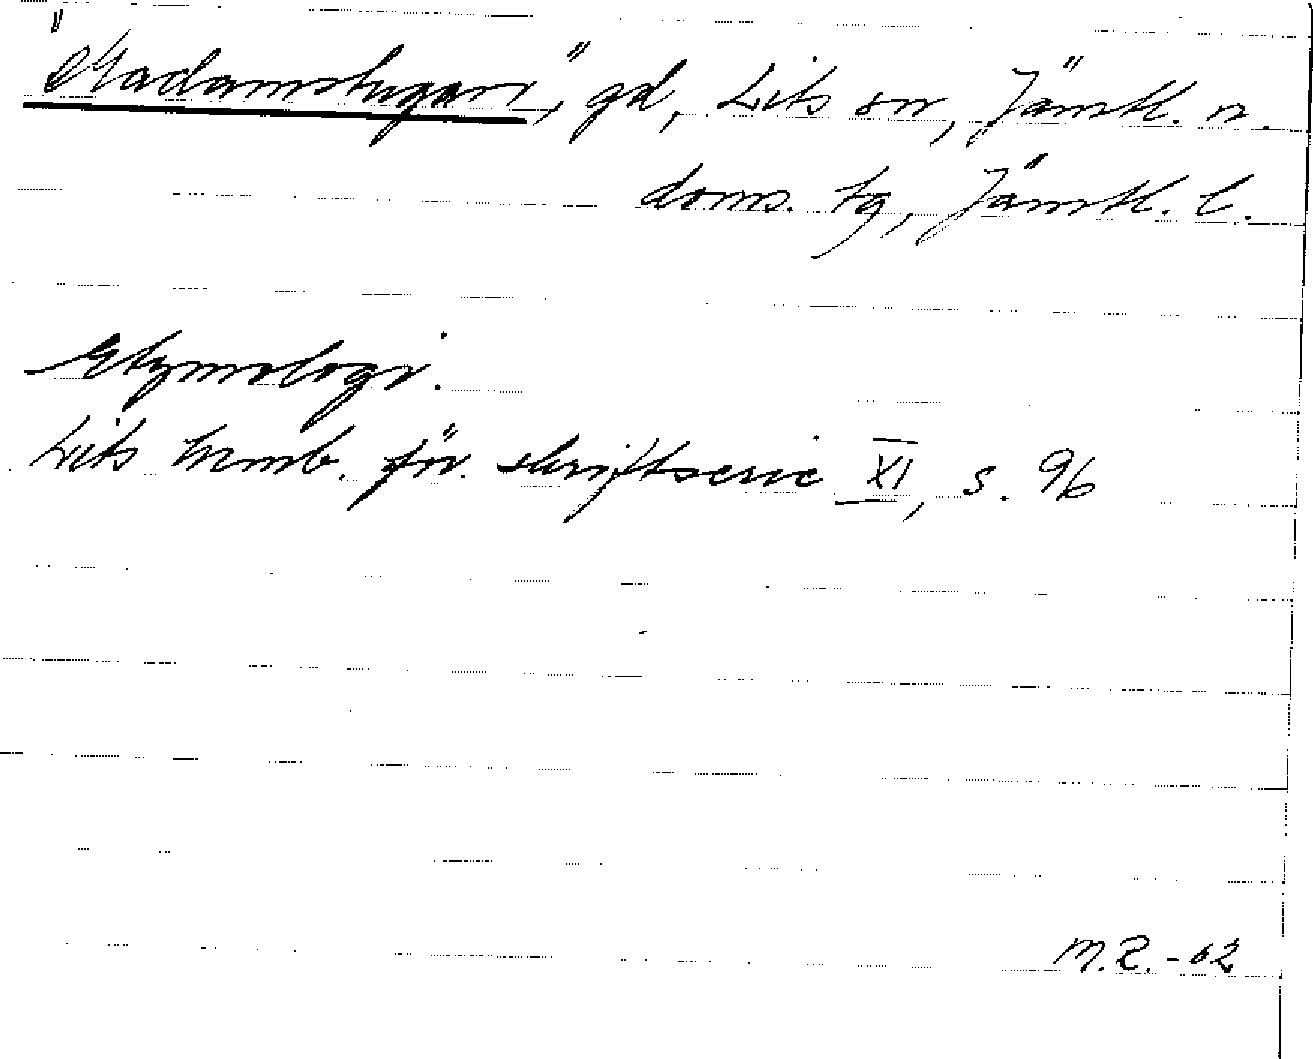 "Madamstugan", gd, Lits sn, Jämtl. n.
doms. tg, Jämtl. l.
Etymologi.
Lits hemb. för. skriftserie XI, s. 96
M.R.-62